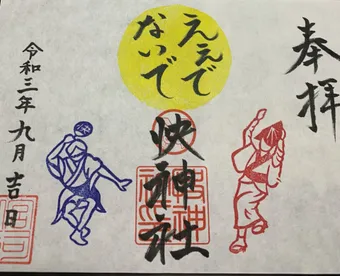 奉拝
ええで
ないで
快神社
令和三年九月吉日